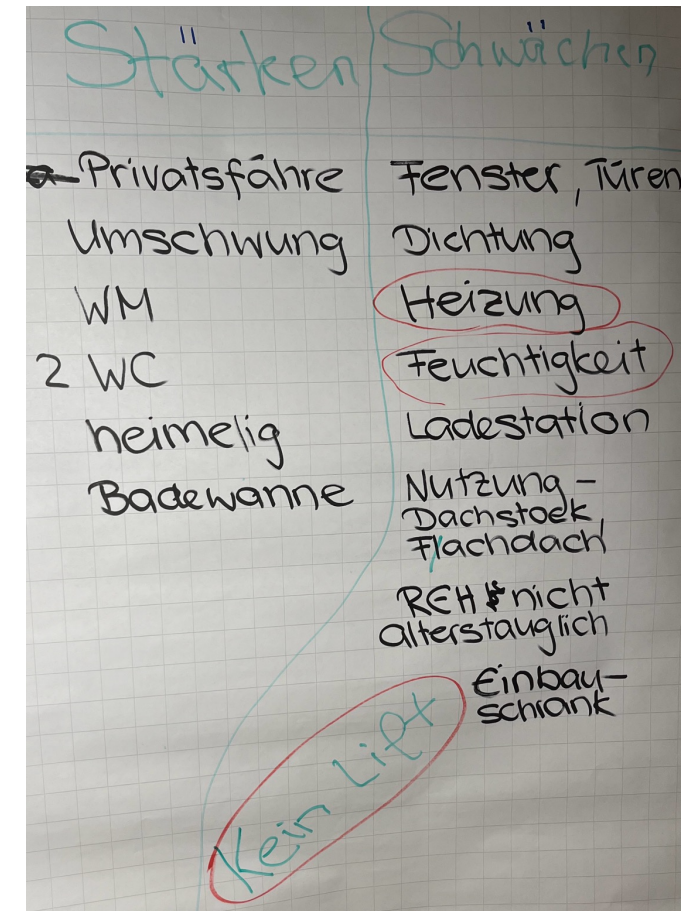 Stärken
Privatsfähre
Umschwung
WM
2 WC
heimelig
Badewanne
Schwächen
Fenster, Türen
Dichtung
Heizung
Feuchtigkeit
Ladestation
Nutzung-
Dachstock,
Flachdach
REH nicht
alterstauglich
Einbau-
schrank
Kein Lift